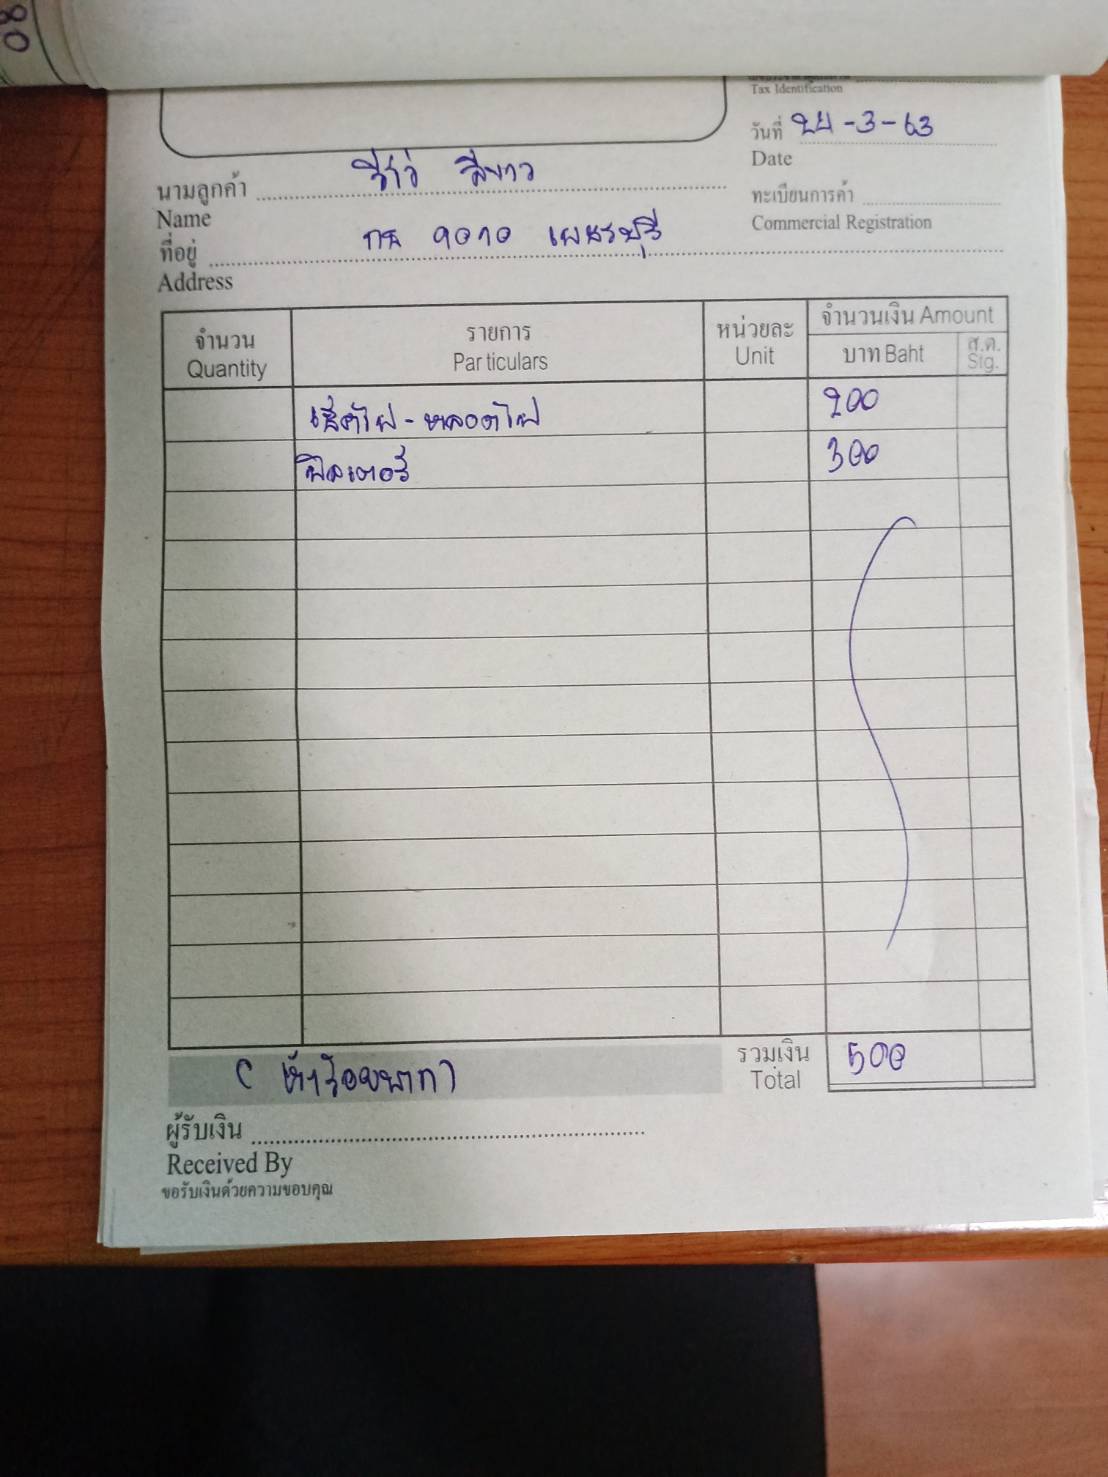 80
Tax Identification
วันที่ 24-3-63
Date
นามลูกค้า ซีวิว สีขาว
Name
ทะเบียนการค้า
Commercial Registration
ที่อยู่ กธ 9090 เพชรบุรี
Address
จำนวน รายการ หน่วยละ จำนวนเงิน Amount
Quantity Particulars Unit บาท Baht ส.ต. Stg.
เช็คไฟ - หลอดไฟ 200
ฟิลเตอร์ 300
( ห้าร้อยบาท ) รวมเงิน 500
Total
ผู้รับเงิน
Received By
ขอรับเงินด้วยความขอบคุณ